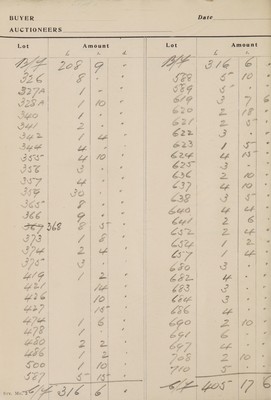 BUYER Date
AUCTIONEERS
Lot Amount Lot Amount
£ s d £ s d
B/f 208 9 " B/f 316 6 "
326 8 " " 588 5 10 "
327A 1 " " 589 5 " "
328A 1 10 " 619 3 7 6
340 1 " " 620 2 18 "
341 2 " " 621 2 5 "
342 1 4 " 622 3 " "
344 4 " " 623 1 5 "
355 4 10 " 624 4 15 "
356 3 " " 625 3 " "
357 4 " " 636 2 10 "
359 30 " " 637 4 10 "
365 8 " " 638 3 5 "
366 9 " " 640 4 4 "
368 8 5 " 641 2 6 "
373 1 8 " 652 2 4 "
374 2 4 " 654 1 2 "
375 3 " " 657 1 4 "
419 1 2 " 680 3 " "
421 14 " 682 4 " "
426 10 " 683 3 " "
427 15 " 684 3 " "
474 1 6 " 686 4 " "
478 1 " " 690 2 10 "
480 2 2 " 691 6 " "
486 1 2 " 697 4 " "
500 1 10 " 708 2 10 "
587 5 15 " 710 5 " "
C/f 316 6 " C/f 405 17 6